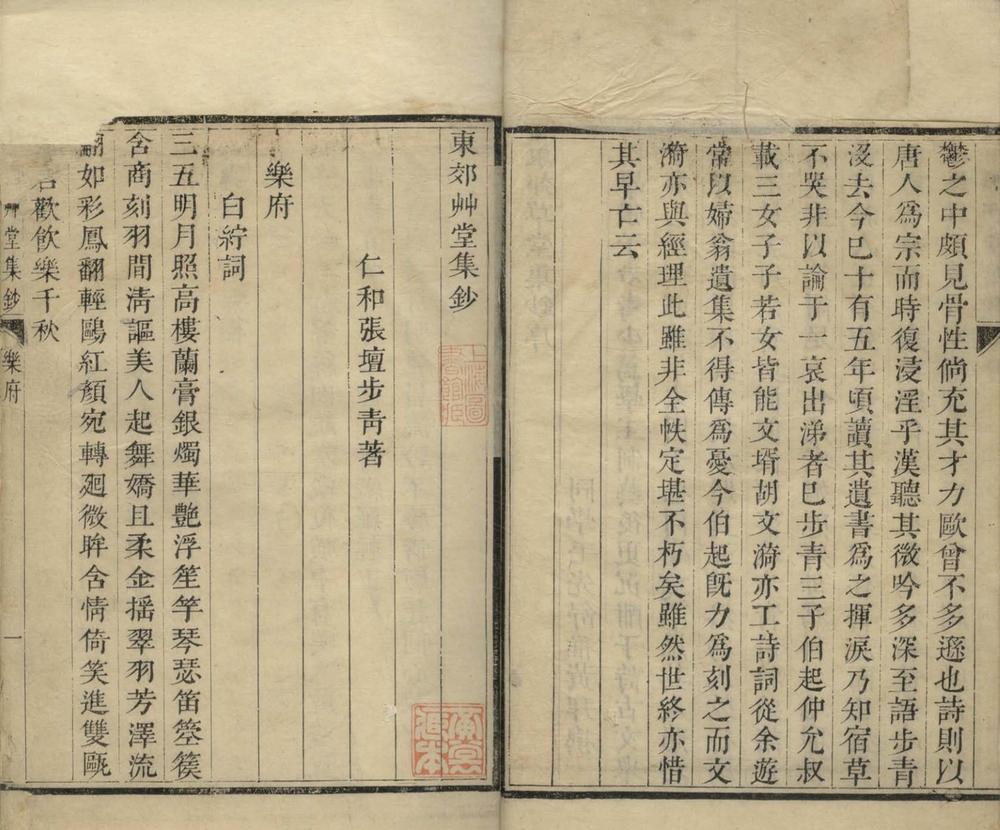 鬱之中頗見骨性倘充其才力歐曾不多遜也詩則以
唐人爲宗而時復浸淫乎漢聽其微吟多深至語步青
沒去今已十有五年頃讀其遺書爲之揮淚乃知宿草
不哭非以論于一哀出涕者已步青三子伯起仲允叔
載三女子子若女皆能文壻胡文漪亦工詩詞從余遊
常以婦翁遺集不得傳爲憂今伯起旣力爲刻之而文
漪亦與經理此雖非全帙定堪不朽矣雖然世終亦惜
其早亡云
東郊艸堂集鈔
仁和張壇步靑著
樂府
白紵詞
三五明月照高樓蘭膏銀燭華艷浮笙竽琴瑟笛箜篌
含商刻羽間淸謳美人起舞嬌且柔金搖翠羽芳澤流
翩如彩鳳翻輕鷗紅顏宛轉廻微眸含情倚笑進雙甌
君歡飲樂千秋
艸堂集鈔 樂府 一
上海圖書館藏